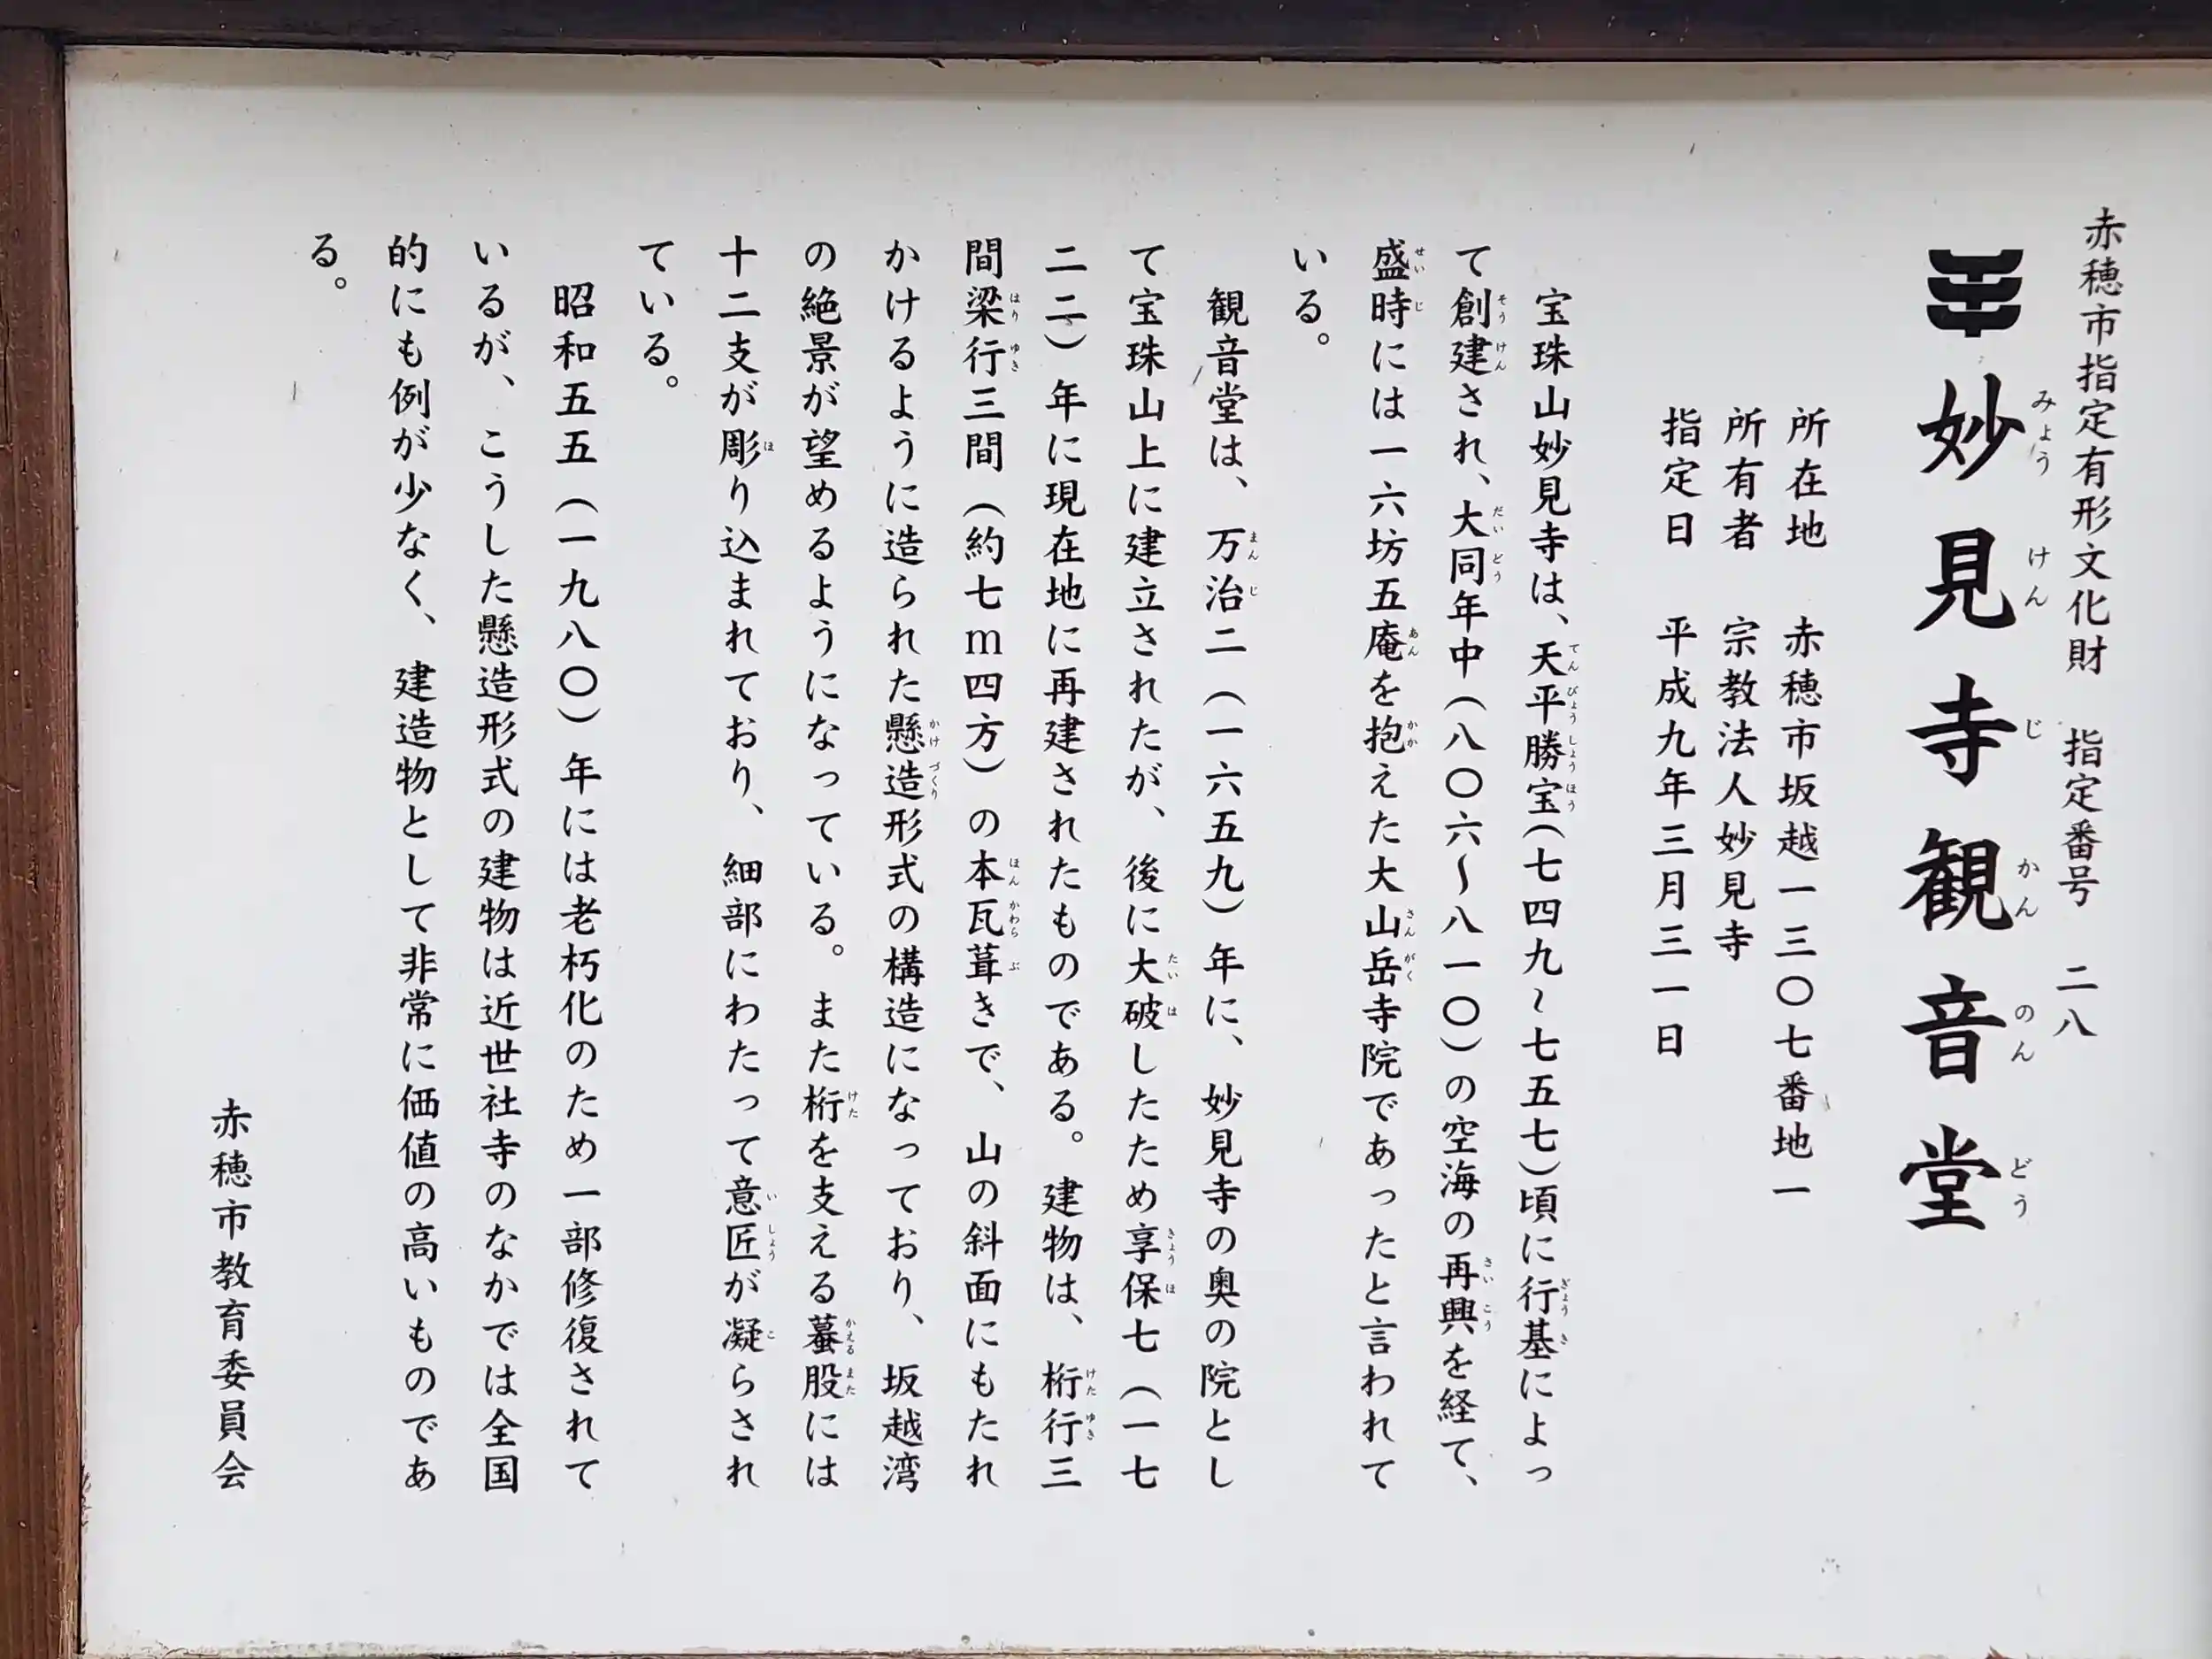 赤穂市指定有形文化財　指定番号　二八
妙見寺観音堂
みょうけんじかんのんどう
所在地　赤穂市坂越一三〇七番地一
所有者　宗教法人妙見寺
指定日　平成九年三月三一日
宝珠山妙見寺は、天平勝宝(七四九～七五七)頃に行基によっ
て創建され、大同年中(八〇六～八一〇)の空海の再興を経て、
盛時には一六坊五庵を抱えた大山岳寺院であったと言われて
いる。
観音堂は、万治二(一六五九)年に、妙見寺の奥の院とし
て宝珠山上に建立されたが、後に大破したため享保七(一七
二二)年に現在地に再建されたものである。建物は、桁行三
間梁行三間(約七m四方)の本瓦葺きで、山の斜面にもたれ
かけるように造られた懸造形式の構造になっており、坂越湾
の絶景が望めるようになっている。また桁を支える蟇股には
十二支が彫り込まれており、細部にわたって意匠が凝らされ
ている。
昭和五五(一九八〇)年には老朽化のため一部修復されて
いるが、こうした懸造形式の建物は近世社寺のなかでは全国
的にも例が少なく、建造物として非常に価値の高いものであ
る。
赤穂市教育委員会